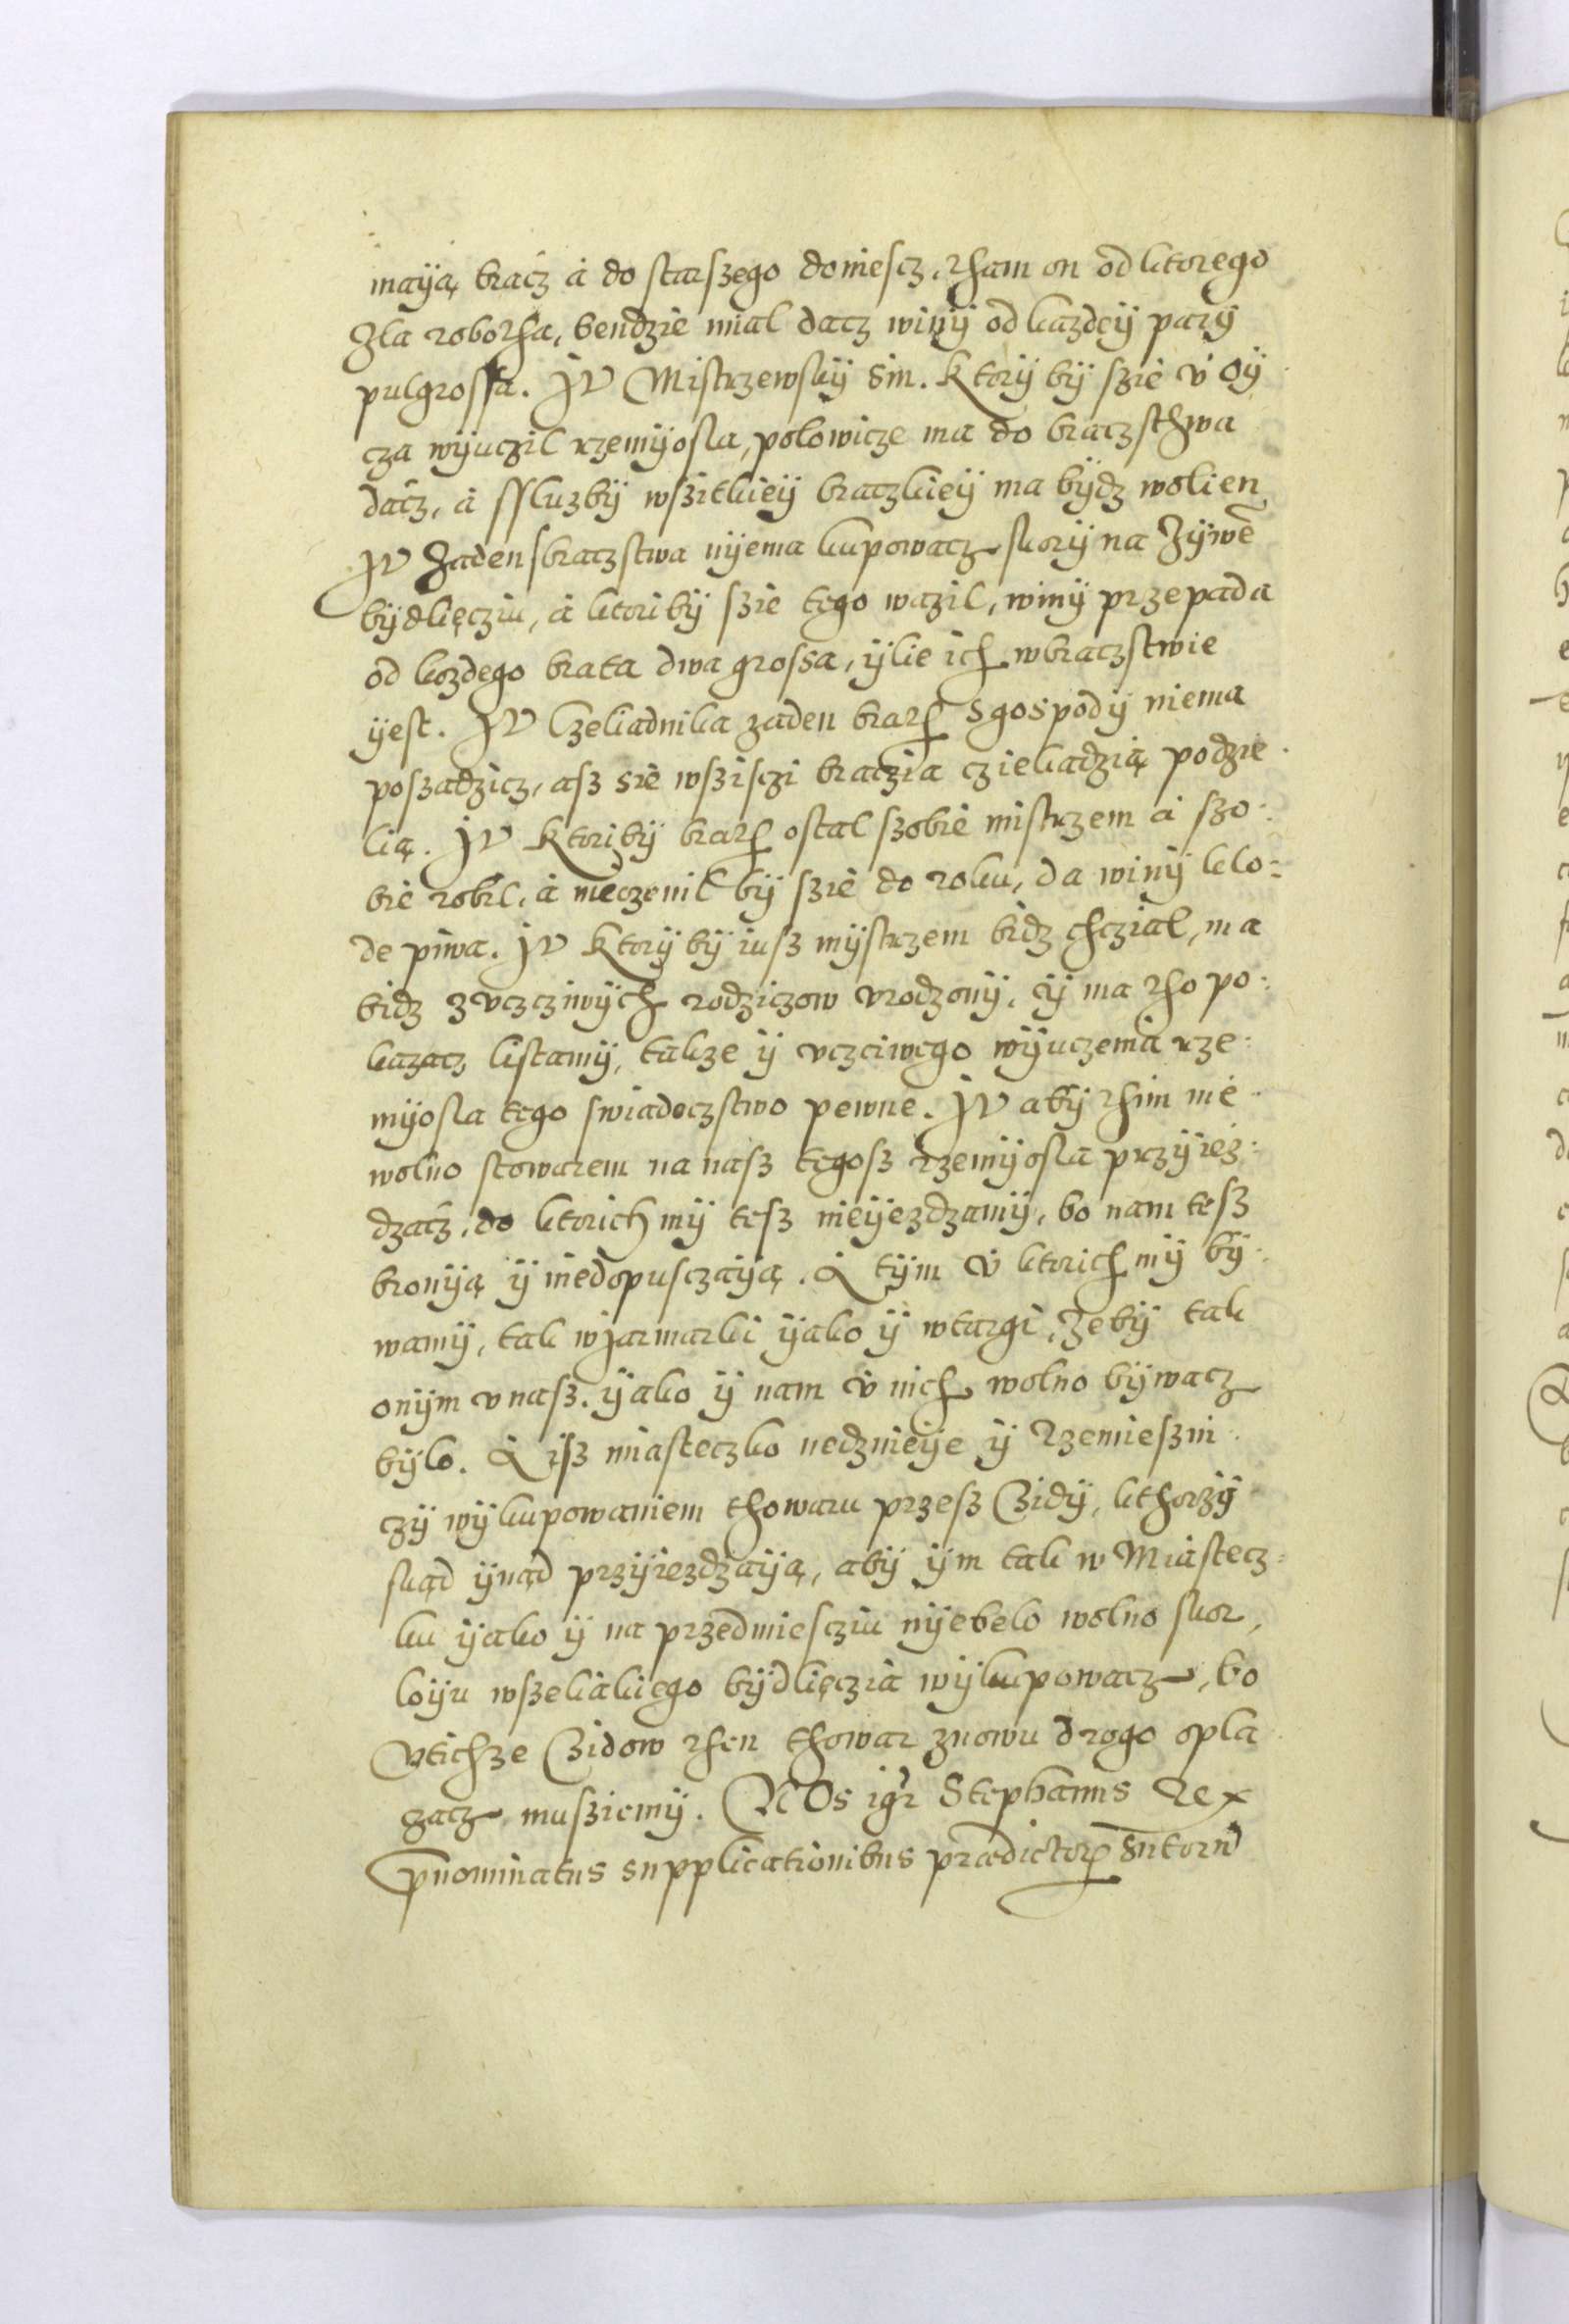 mayą bracz à do starszego doniescz, tham on od ktorego
Zla robotha, bendzie mial dacz winÿ od kazdeÿ parÿ
pulgrossa. It Mistrzewskÿ Sin. Ktorÿ bÿ szie v oÿ
cza wÿuczil rzemÿosla, polowicze ma do braczsthwa
dacz, à ssluzbÿ wszitkieÿ braczkieÿ ma bÿdz wolien
It Zaden sbraczstwa nÿema kupowacz skorÿ na Zÿwē
bÿdlięcziu, à ktori bÿ szie tego wazil, winÿ przepada
od kozdego brata dwa grossa, ÿlie ich wbraczstwie
ÿest. It Czeliadnika zaden brath sgospodÿ niema
poszadzicz, asz sie wszisczi braczia czieliadzią podzie
lią. It Ktori bÿ brath ostal szobie mistrzem à szo:
bie robil, à nieczenil bÿ szie do roku, da winÿ klo:
de piwa. It Ktorÿ bÿ iusz mÿstrzem bidz chczial, ma
bidz z vczcziwÿch rodziczow vrodzonÿ, ÿ ma tho po:
kazacz listamÿ, takze ÿ vczciwego wÿuczenia rze:
mÿosla tego swiadeczstwo pewne. It abÿ thim nie
wolno stowarem na nasz tegosz rzemÿosla przÿiez:
dzacz, do ktorich mÿ tesz nieÿezdzamÿ, bo nam tesz
bronÿą ÿ niedopusczaÿą. A tÿm v ktorich mÿ bÿ:
wamÿ, tak wjarmarki ÿako ÿ wtargi, Zebÿ tak
onÿm v nasz. ÿako ÿ nam v nich wolno bÿwacz
bÿlo. A isz miasteczko nedznieÿe ÿ Rzemieszni
czÿ wÿkupowaniem thowaru przesz Zidÿ, kthorzÿ
skąd ÿnąd przÿiezdzaÿą, abÿ ÿm tak w Miastecz:
ku ÿako ÿ na przedmiescziu nÿebelo wolno skor,
loÿu wszeliakiego bÿdlięczia wÿkupowacz, bo
Vtichze Zidow then thowar znowu drogo opla
zacz musziemÿ. NOs igr Stephanus Rex
pnominatus supplicationibus prædictor Sutorū